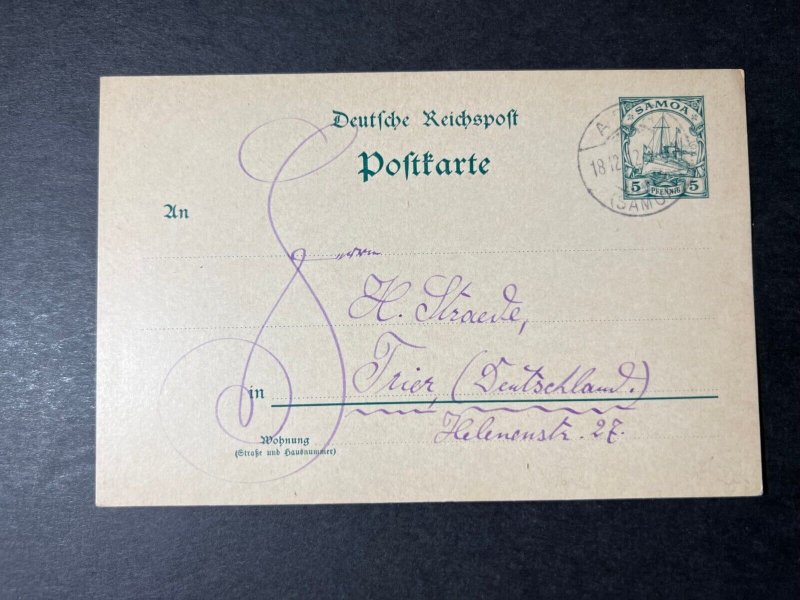 Deutsche Reichspost
SAMOA
Postkarte
18.12.
5 PFENNIG 5
(SAMOA
An
H. Straede,
in Trier, (Deutschland.)
Wohnung
(Straße und Hausnummer)
Helenenstr. 27.